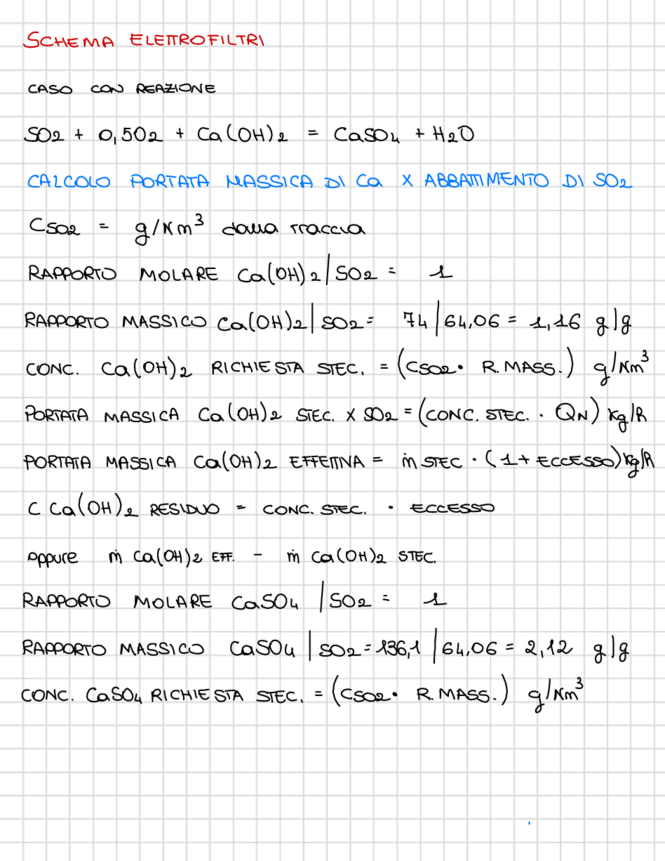 SCHEMA ELETTROFILTRI
CASO CON REAZIONE
SO2 + 0,5O2 + Ca(OH)2 = CaSO4 + H2O
CALCOLO PORTATA MASSICA DI Ca X ABBATTIMENTO DI SO2
CSO2 = g/Nm³ dalla traccia
RAPPORTO MOLARE Ca(OH)2/SO2 = 1
RAPPORTO MASSICO Ca(OH)2/SO2 = 74/64,06 = 1,16 g/g
CONC. Ca(OH)2 RICHIESTA STEC. = (CSO2 · R. MASS.) g/Nm³
PORTATA MASSICA Ca(OH)2 STEC. X SO2 = (CONC. STEC. · QN) kg/h
PORTATA MASSICA Ca(OH)2 EFFETTIVA = ṁ STEC · (1 + ECCESSO) kg/h
C Ca(OH)2 RESIDUO = CONC. STEC. · ECCESSO
oppure ṁ Ca(OH)2 EFF. - ṁ Ca(OH)2 STEC.
RAPPORTO MOLARE CaSO4/SO2 = 1
RAPPORTO MASSICO CaSO4/SO2 = 136,1/64,06 = 2,12 g/g
CONC. CaSO4 RICHIESTA STEC. = (CSO2 · R. MASS.) g/Nm³